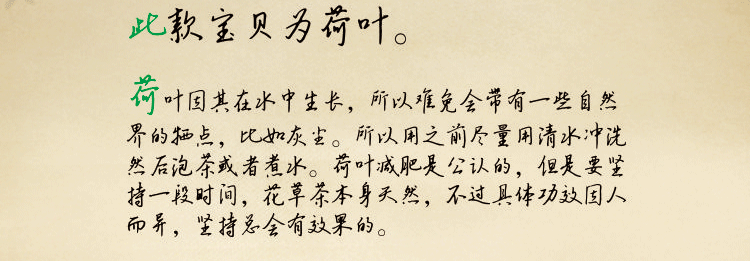 此款宝贝为荷叶。
荷叶因其在水中生长，所以难免会带有一些自然
界的牺点，比如灰尘。所以用之前尽量用清水冲洗
然后泡茶或者煮水。荷叶减肥是公认的，但是要坚
持一段时间，花草茶本身天然，不过具体功效因人
而异，坚持总会有效果的。